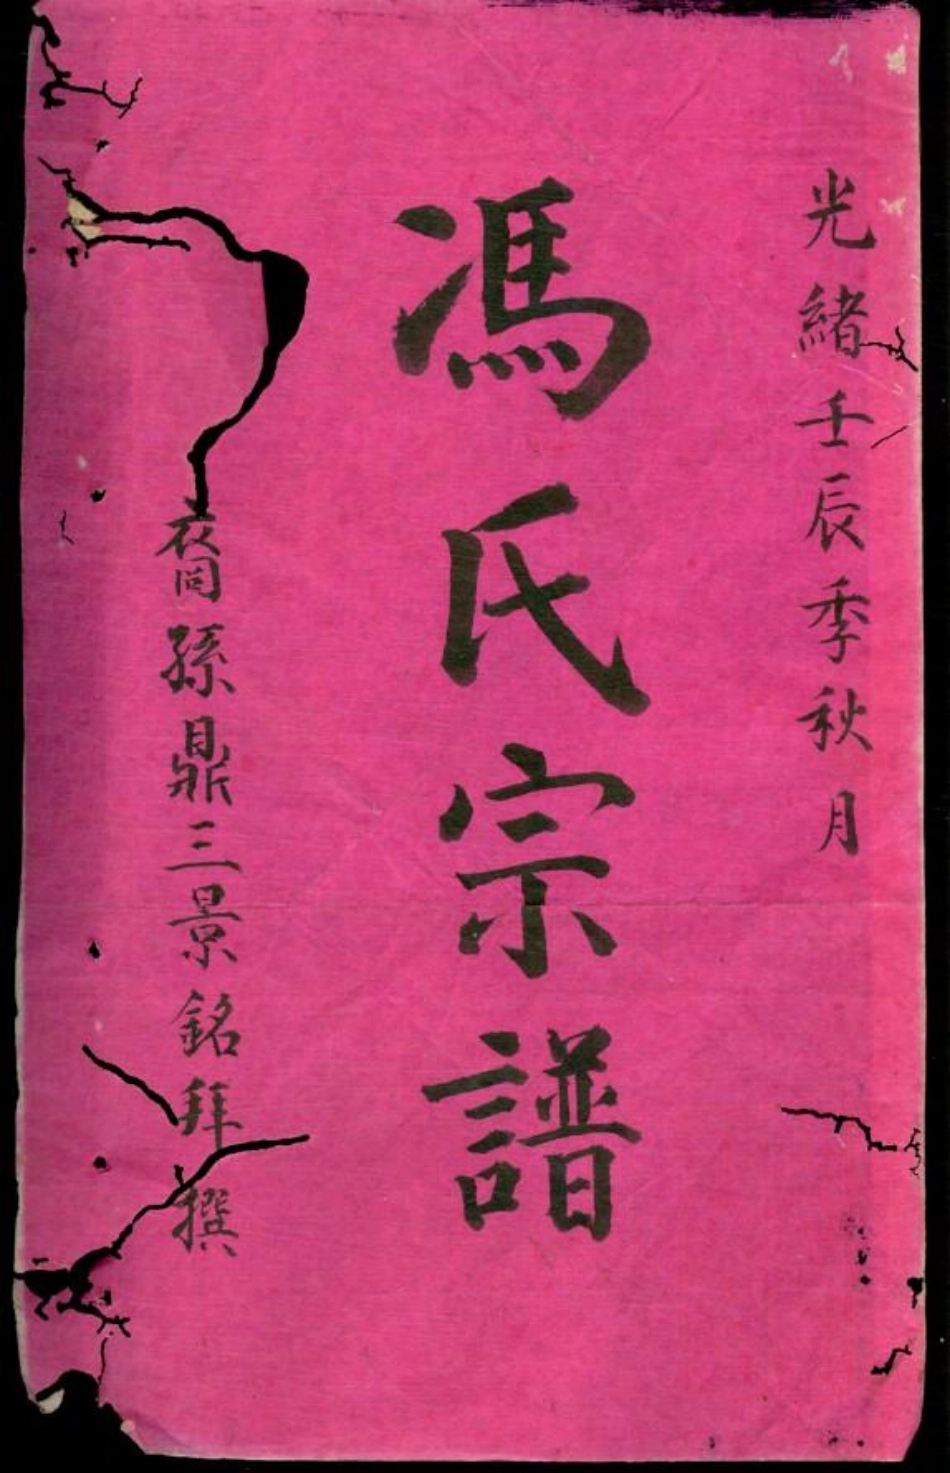 光緒壬辰季秋月
馮氏宗譜
孫鼎三景銘拜撰